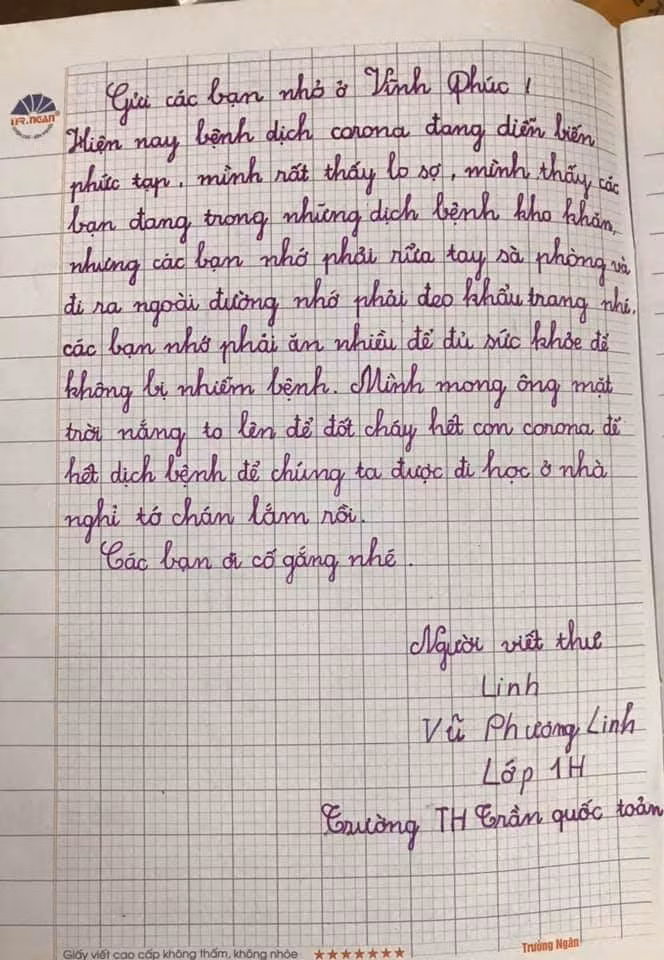 TR.NGAN®
Gửi các bạn nhỏ ở Vĩnh Phúc !
Hiện nay bệnh dịch corona đang diễn biến
phức tạp, mình rất thấy lo sợ, mình thấy các
bạn đang trong những dịch bệnh kho khăn,
nhưng các bạn nhớ phải rửa tay sà phòng và
đi ra ngoài đường nhớ phải đeo khẩu trang nhé.
các bạn nhớ phải ăn nhiều để đủ sức khỏe để
không bị nhiễm bệnh. Mình mong ông mặt
trời nắng to lên để đốt cháy hết con corona để
hết dịch bệnh để chúng ta được đi học ở nhà
nghỉ tớ chán lắm rồi.
Các bạn ơi cố gắng nhé.
Người viết thư
Linh
Vũ Phương Linh
Lớp 1H
Trường TH Trần quốc toản
Giấy viết cao cấp không thấm, không nhòe ★★★★★★★ Trường Ngân